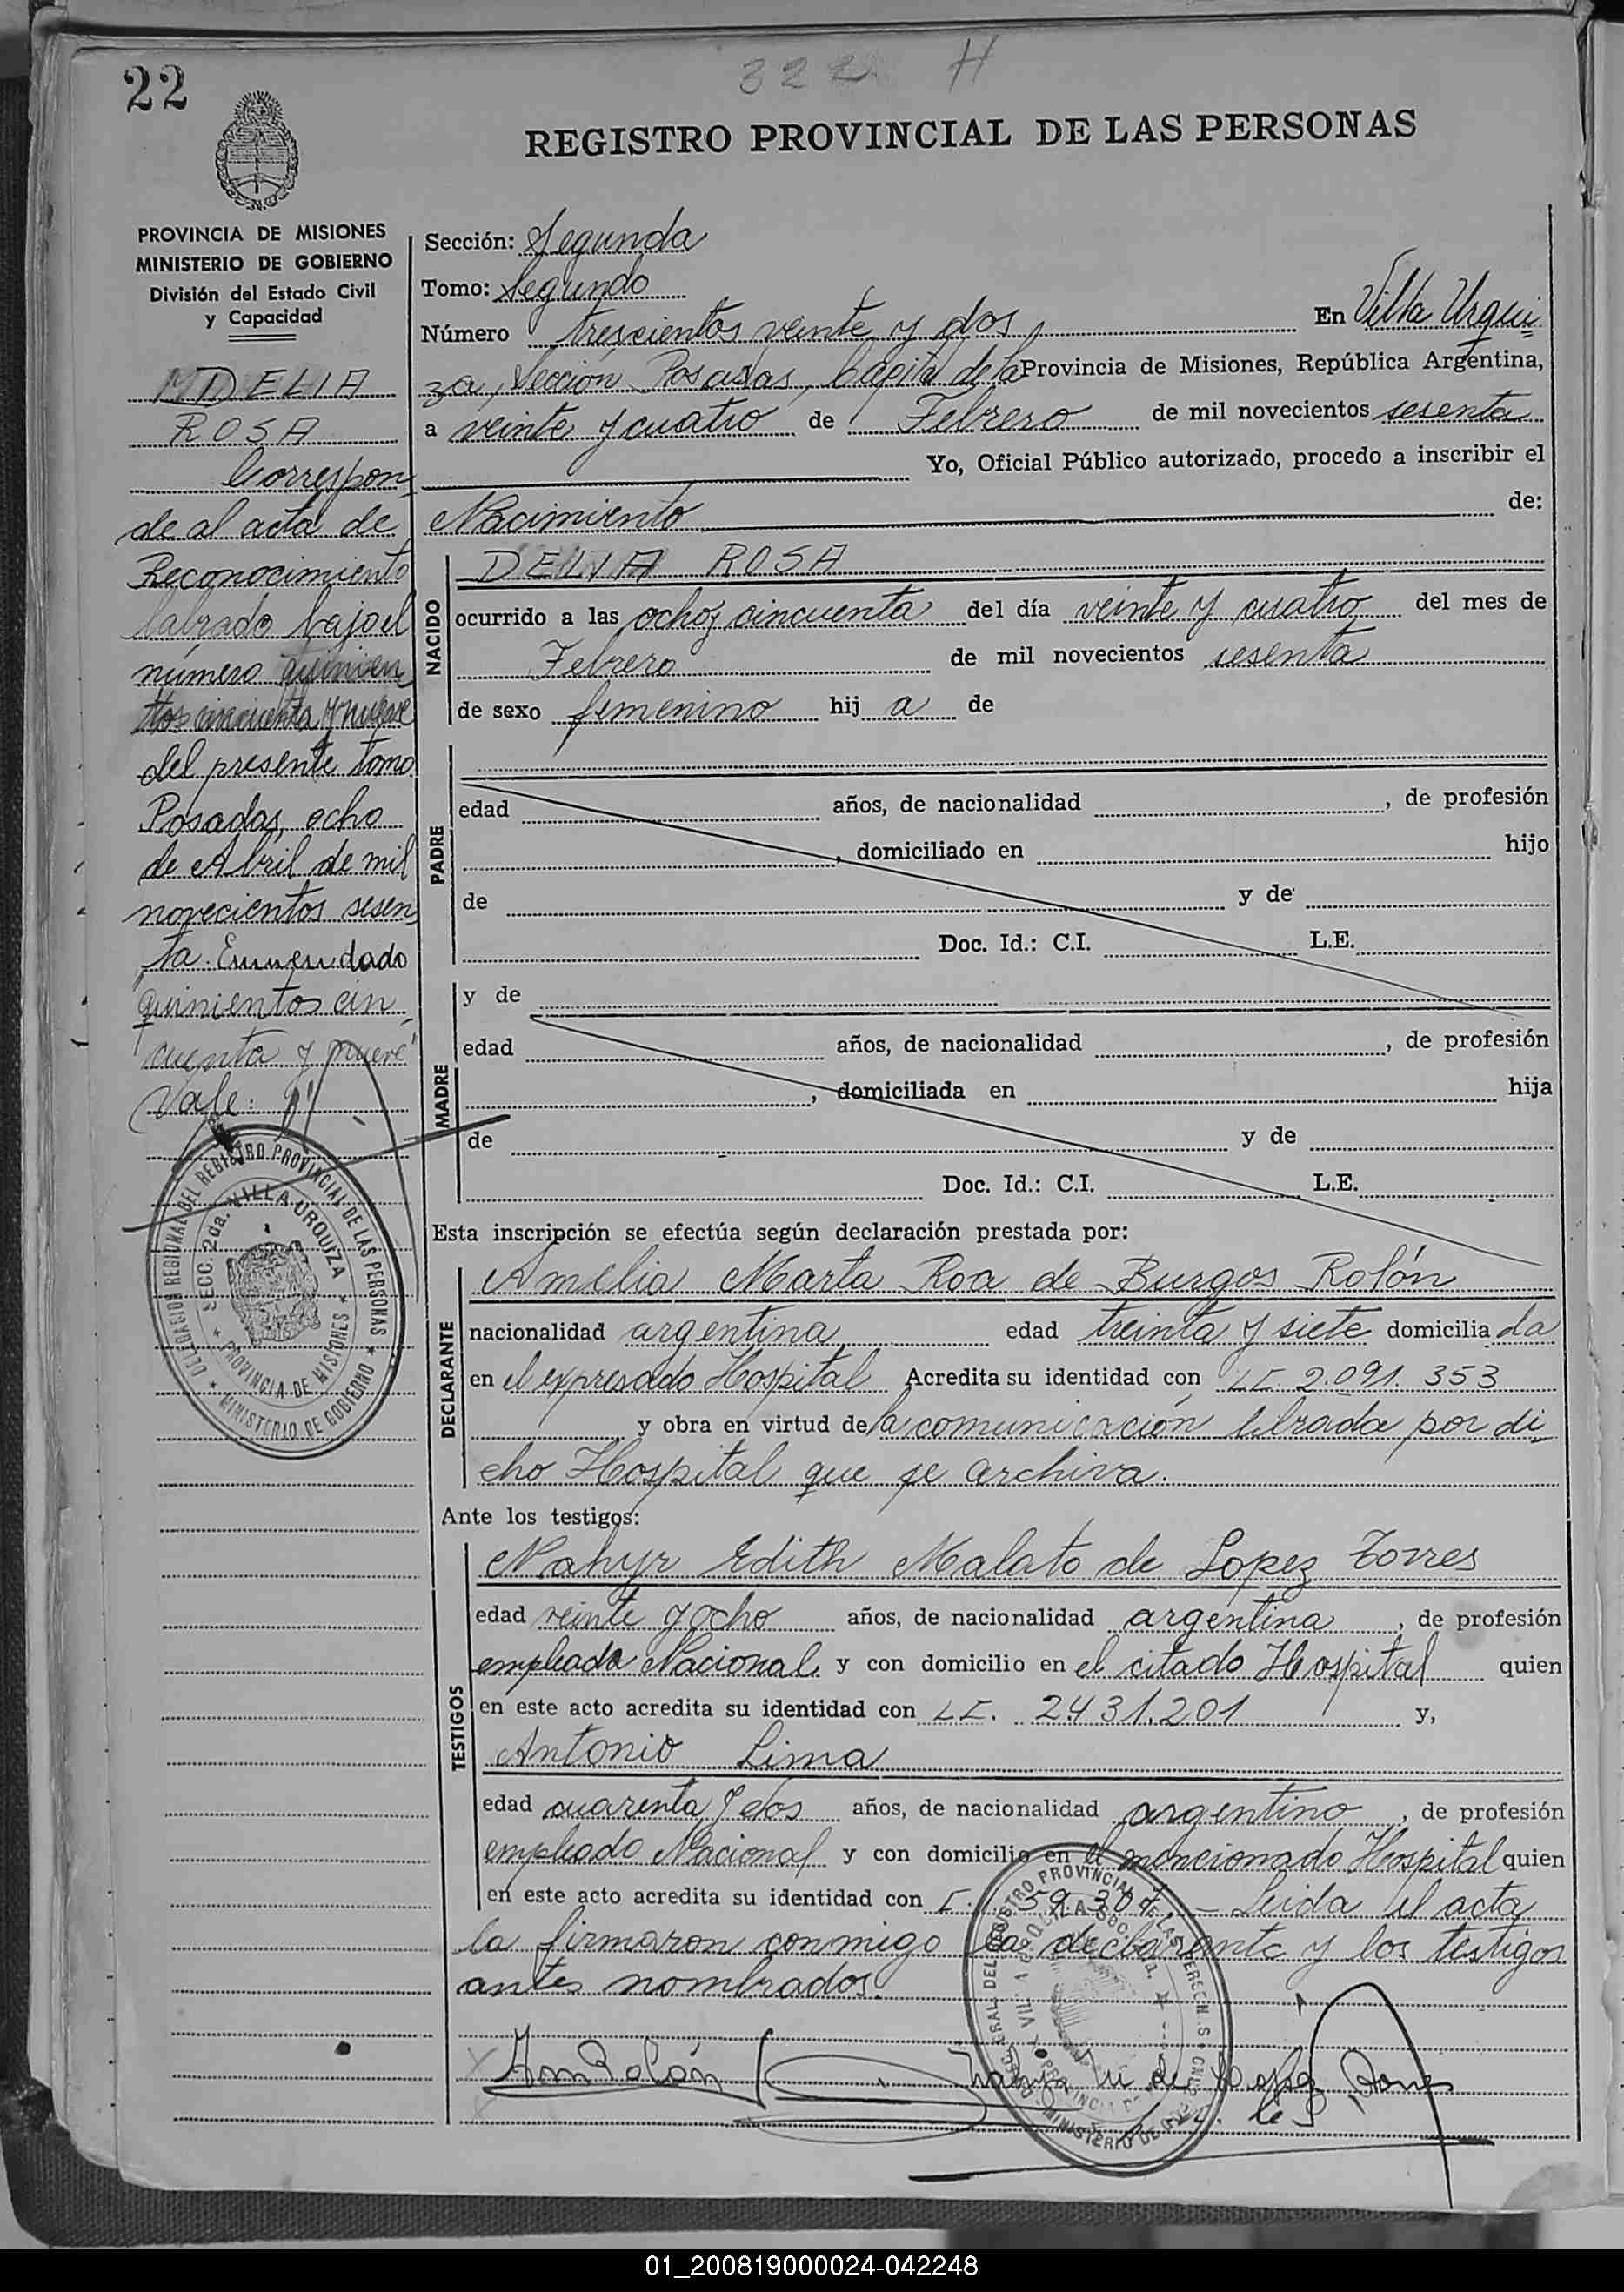 22
322 H
REGISTRO PROVINCIAL DE LAS PERSONAS
PROVINCIA DE MISIONES
MINISTERIO DE GOBIERNO
División del Estado Civil
y Capacidad
DELIA
ROSA
Correspon
de al acta de
Reconocimiento
labrado bajo el
número quinien
tos cincuenta y nueve
del presente tomo
Posadas, ocho
de Abril de mil
novecientos sesen
ta. Enmendado
"quinientos cin
cuenta y nueve"
Vale:
DELEGACION REGIONAL DEL REGISTRO PROVINCIAL DE LAS PERSONAS
SECC. 2da. VILLA URQUIZA
PROVINCIA DE MISIONES
MINISTERIO DE GOBIERNO
Sección: Segunda
Tomo: Segundo
Número trescientos veinte y dos, En Villa Urqui
za, Sección Posadas, Capital de la Provincia de Misiones, República Argentina,
a veinte y cuatro de Febrero de mil novecientos sesenta
Yo, Oficial Público autorizado, procedo a inscribir el
Nacimiento de:
NACIDO
DELIA ROSA
ocurrido a las ocho y cincuenta del día veinte y cuatro del mes de
Febrero de mil novecientos sesenta
de sexo femenino hij a de
PADRE
edad años, de nacionalidad , de profesión
, domiciliado en hijo
de y de
Doc. Id.: C.I. L.E.
MADRE
y de
edad años, de nacionalidad , de profesión
, domiciliada en hija
de y de
Doc. Id.: C.I. L.E.
Esta inscripción se efectúa según declaración prestada por:
DECLARANTE
Amelia Marta Roa de Burgos Rolón
nacionalidad argentina edad treinta y siete domicilia da
en el expresado Hospital Acredita su identidad con LC 2.091.353
y obra en virtud de la comunicación librada por di
cho Hospital que se archiva.
Ante los testigos:
TESTIGOS
Nahyr Edith Malato de Lopez Torres
edad veinte y ocho años, de nacionalidad argentina , de profesión
empleada Nacional y con domicilio en el citado Hospital quien
en este acto acredita su identidad con LC. 2431.201 y,
Antonio Lima
edad cuarenta y dos años, de nacionalidad argentino , de profesión
empleado Nacional y con domicilio en el mencionado Hospital quien
en este acto acredita su identidad con Leida el acta
la firmaron conmigo la declarante y los testigos
antes nombrados.
Rolón
de Lopez Torres
01_200819000024-042248